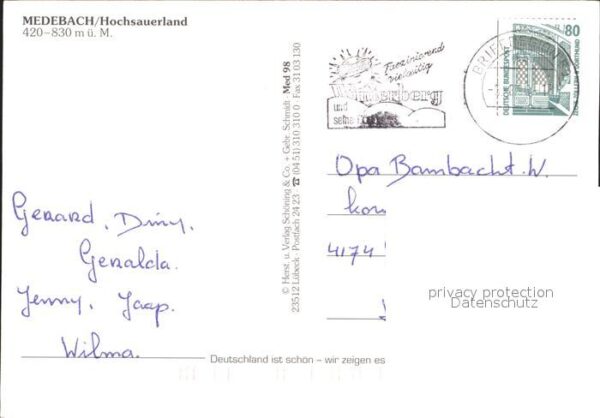 MEDEBACH/Hochsauerland
420–830 m ü. M.
Faszinierend
vielseitig
Winterberg
und
seine
BRIEFZENTRUM
80
DEUTSCHE BUNDESPOST
DORTMUND
© Herst. u. Verlag Schöning & Co. + Gebr. Schmidt · Med 98
23512 Lübeck · Postfach 24 23 ☎ (04 51) 310 310 0 · Fax 31 03 130
Opa Bambacht. W.
kon
4174
Gerard, Diny,
Geralda.
Jenny, Jaap.
Wilma.
privacy protection
Datenschutz
Deutschland ist schön – wir zeigen es